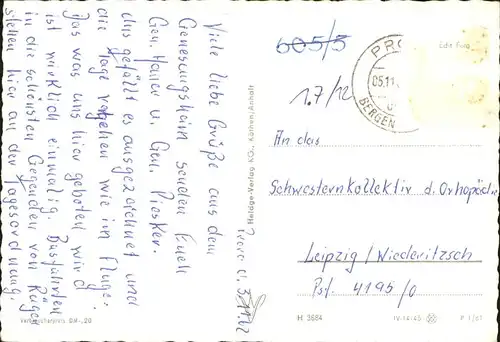 Prora d. 3.11.62
Viele liebe Grüße aus dem
Genesungsheim senden Euch
Gen. Hauer u. Gen. Piesker.
Uns gefällt es ausgezeichnet und
die Tage vergehen wie im Fluge.
Das was uns hier geboten wird
ist wirklich einmalig. Busfahrten
in die schönsten Gegenden von Rügen
stehen hier an der Tagesordnung.
Verbraucherpreis DM -,20
Heldge-Verlag KG., Köthen/Anhalt
605/5
1.7/12
PRO
05.11
BERGEN
Echt Foto
An das
Schwesternkollektiv d. Orthopädie
Leipzig/Wiederitzsch
Psf. 4195/0
H 3664
IV-14-45
P 1/61